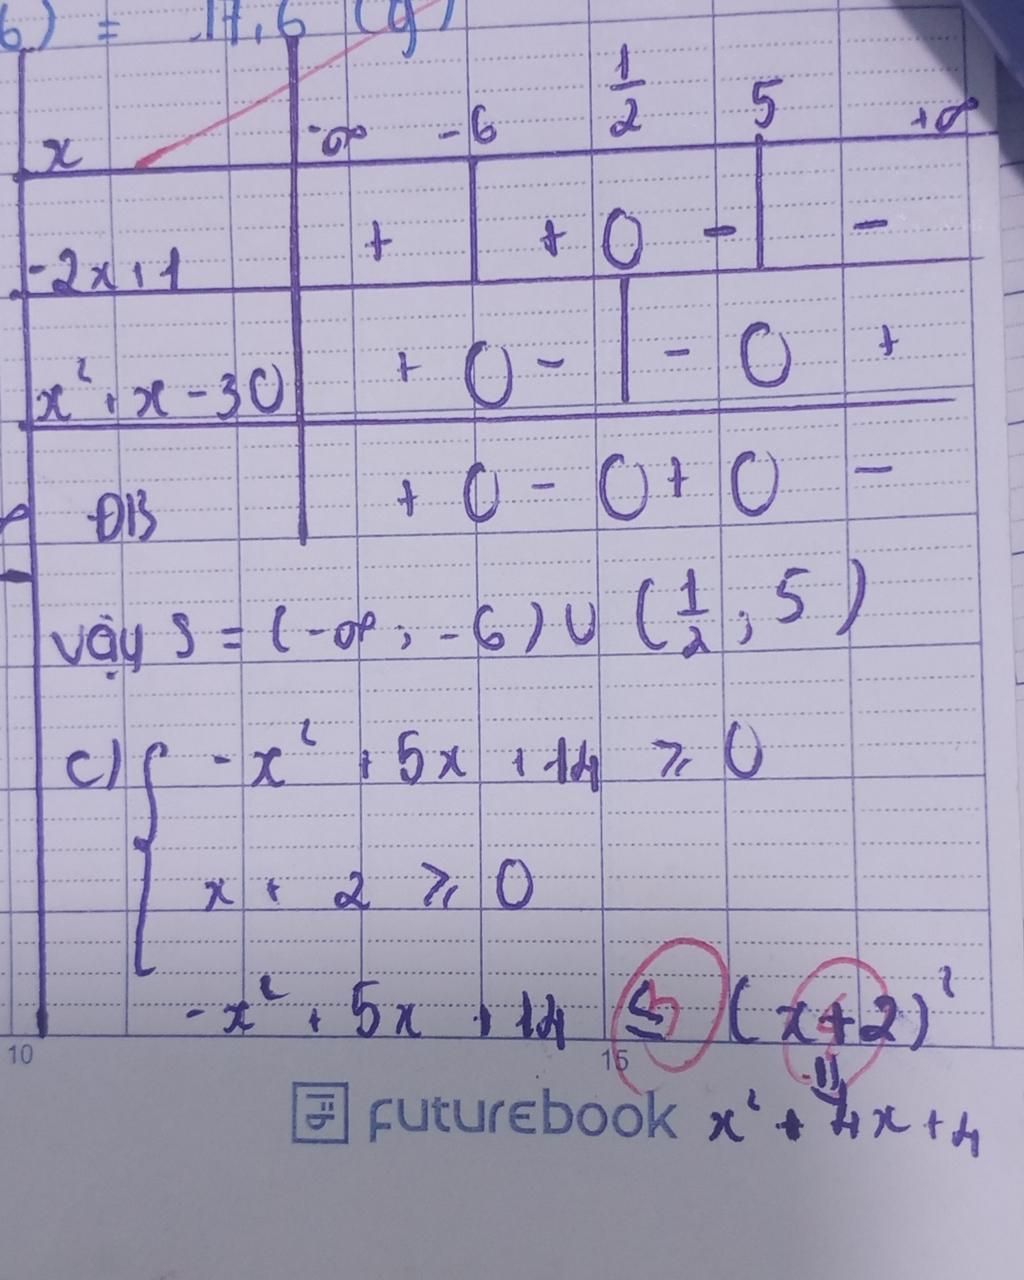 6) = 17,6 (g)
x -∞ -6 1/2 5 +∞
-2x+1 + | + 0 - | -
x²+x-30 + 0 - | - 0 +
ĐB + 0 - 0 + 0 -
vậy S = (-∞; -6) ∪ (1/2; 5)
c) { -x² + 5x + 14 ≥ 0
x + 2 ≥ 0
-x² + 5x + 14 ≤ (x+2)²
10 15
futurebook x² + 4x + 4